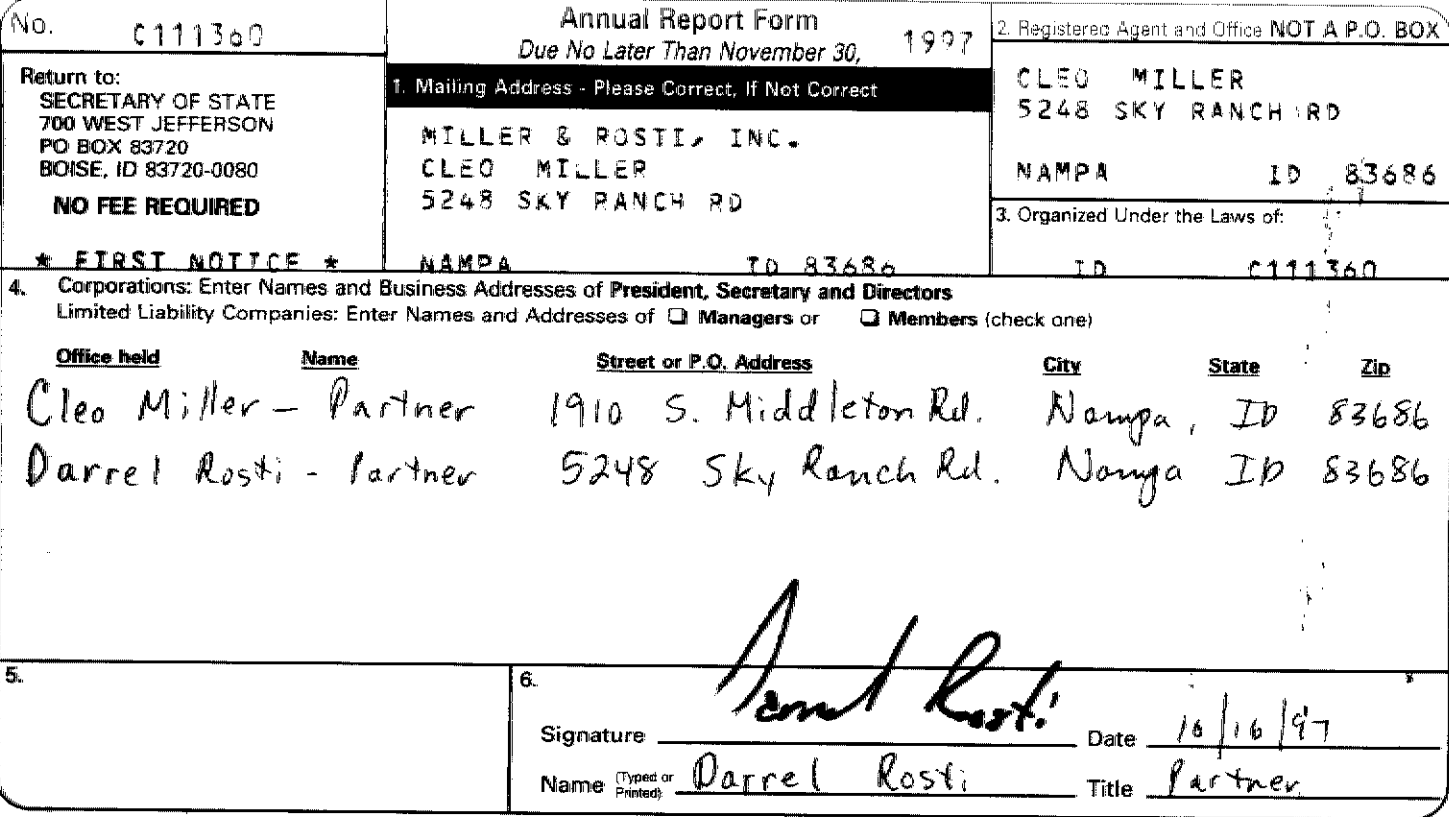 No. C111360
Annual Report Form
Due No Later Than November 30, 1997
Return to:
SECRETARY OF STATE
700 WEST JEFFERSON
PO BOX 83720
BOISE, ID 83720-0080
NO FEE REQUIRED
* FIRST NOTICE *
1. Mailing Address - Please Correct, If Not Correct
MILLER & ROSTI, INC.
CLEO MILLER
5248 SKY RANCH RD
NAMPA ID 83686
2. Registered Agent and Office NOT A P.O. BOX
CLEO MILLER
5248 SKY RANCH RD
NAMPA ID 83686
3. Organized Under the Laws of:
ID C111360
4. Corporations: Enter Names and Business Addresses of President, Secretary and Directors
Limited Liability Companies: Enter Names and Addresses of ❑ Managers or ❑ Members (check one)
Office held Name Street or P.O. Address City State Zip
Cleo Miller - Partner 1910 S. Middleton Rd. Nampa, ID 83686
Darrel Rosti - Partner 5248 Sky Ranch Rd. Nampa ID 83686
5.
6.
Signature Darrel Rosti Date 10/16/97
Name (Typed or Printed) Darrel Rosti Title Partner